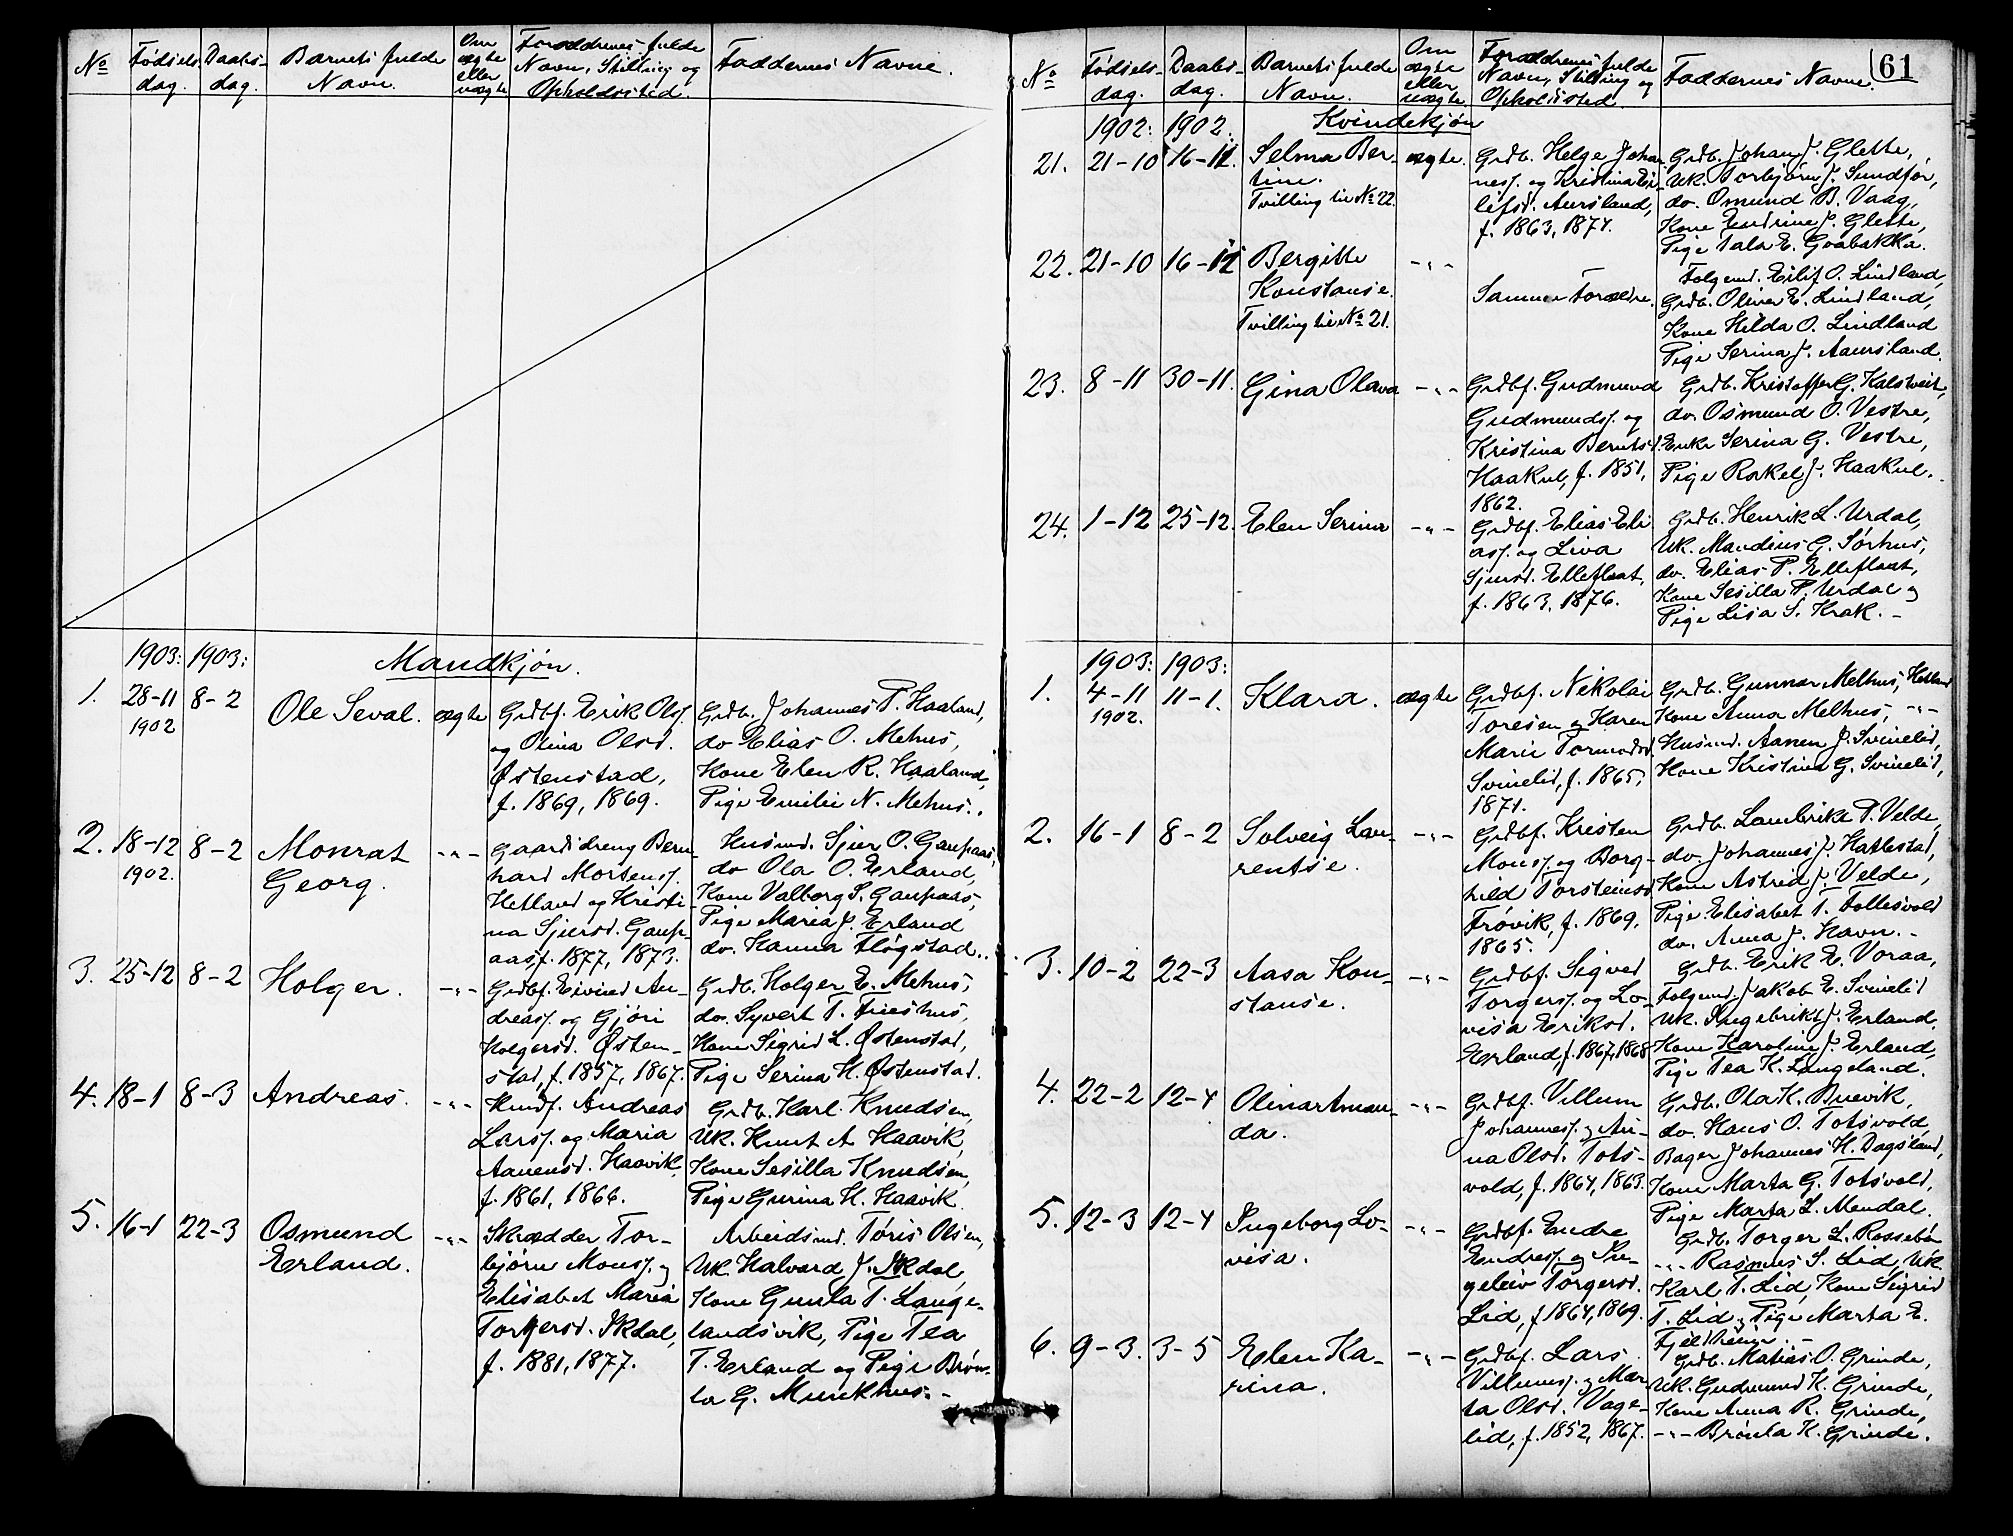 No
Fødsels-
dag.
Daabs-
dag.
Barnets fulde
Navn.
Om
ægte
eller
uægte
Forældrenes fulde
Navn, Stilling og
Opholdssted.
Faddernes Navne.
1903: 1903:
Mandkjøn.
1. 28-11
1902
8-2
Ole Seval.
ægte
Grdbf. Erik Olsf.
og Olina Olsd.
Østenstad,
f. 1869, 1869.
Grdb. Johannes T. Haaland,
do Elias O. Mehus,
Kone Elen R. Haaland,
Pige Emilie N. Mehus.
2. 18-12
1902.
8-2
Monrat
Georg.
-"-
Gaardsdreng Bern-
hard Mortensf.
Hetland og Kristi-
na Sjursd. Gaup-
aas, f. 1877, 1873.
Husmd. Sjur O. Gaupaas,
do Ola O. Erland,
Kone Valborg S. Gaupaas,
Pige Maria J. Erland
do. Hanna Fløgstad.
3. 25-12
8-2
Holger.
-"-
Grdbf. Eivind An-
dreasf. og Gjøri
Holgersd. Østen-
stad, f. 1857, 1867.
Grdb. Holger E. Mehus,
do. Syvert T.
Kone Sigrid L. Østenstad,
Pige Serina H. Østenstad.
4. 18-1
8-3
Andreas.
-"-
Andreas
Larsf. og Maria
Aanensd. Haavik,
f. 1861, 1866.
Grdb. Karl Knudsen,
Uk. Knut A. Haavik,
Kone Sesilla Knudsen,
Pige Gurina H. Haavik
5. 16-1
22-3
Osmund
Erland.
-"-
Skrædder Tor-
bjørn Monsf. og
Elisabet Maria
Torgersd. Ikdal,
f. 1881, 1877.
Arbeidsmd. Tøris Olsen,
Uk. Halvard J. Ikdal,
Kone Gunla T. Lange-
landsvik, Pige Tea
T. Erland og Pige Brøn-
la G. Munkhus.-
61
No
Fødsels-
dag.
Daabs-
dag.
Barnets fulde
Navn.
Om
ægte
eller
uægte
Forældrenes fulde
Navn, Stilling og
Opholdssted
Faddernes Navne.
1902: 1902.
Kvindekjøn
21. 21-10
16-11
Selma Ber-
tine.
Tvilling til No 22.
ægte.
Grdb. Helge Johan-
nesf. og Kristina Ei-
lifsd. Aursland,
f. 1863, 1874.
Grdb. Johan J. Glette,
Uk. Torbjørn J. Sundfør,
do. Osmund B. Vaag,
Kone Endrine J. Glette,
Pige Tala E. Goabakka.
22. 21-10
16-11
Bergitte
Konstanse.
Tvilling til No 21.
-"-
Samme Forældre.
Folgemd. Eilif O. Lindland,
Grdb. Oliver E. Lindland,
Kone Hilda O. Lindland
Pige Serina J. Aaursland.
23. 8-11
30-11.
Gina Olava
-"-
Grdbf. Gudmund
Gudmundsf. og
Kristina Berntsd.
Haakul, f. 1851,
1862.
Grdb. Kristoffer G. Kalstveit,
do. Osmund O. Vestre,
Enke Serina G. Vestre,
Pige Rakel J. Haakul.
24. 1-12
25-12.
Elen Serina
-"-
Grdbf. Elias Eli-
asf. og Liva
Sjursd. Elleflaat,
f. 1863, 1876.
Grdb. Henrik L. Urdal,
Uk. Maudius G. Sørhus,
do. Elias P. Elleflaat,
Kone Sesilla P. Urdal og
Pige Lisa S. Krak.-
1903: 1903:
1. 4-11
1902.
11-1.
Klara.
ægte
Grdbf. Nikolai
Toresen og Karen
Marie Tormodsd.
Svinelid, f. 1865,
1871.
Grdb. Gunnar Melhus, Hetland
Kone Anna Melhus, -"-
Husmd. Aanen J. Svinelid,
Kone Kristina G. Svinelid,
2. 16-1
8-2
Solveig Lau-
rentse.
-"-
Grdbf. Kristen
Monsf. og Borg-
hild Torsteinsd.
Frøvik, f. 1869,
1865.
Grdb. Lambrikt T. Velde,
do. Johannes J. Hattestad,
Kone Astrid J. Velde,
Pige Elisabet T. Follesvold
do. Anna J. Havn.-
3. 10-2
22-3
Aasa Kon-
stanse.
-"-
Grdbf. Sigved
Torgersf. og Lo-
visa Eriksd.
Erland, f. 1867, 1868
Grdb. Erik E. Voraa,
Folgemd. Jakob E. Svinelid
Uk. Ingebrikt J. Erland,
Kone Karoline J. Erland,
Pige Tea K. Langeland.
4. 22-2
12-4
Olina Aman-
da.
-"-
Grdbf. Villum
Johannesf. og An-
na Olsd. Tots-
vold, f. 1864, 1863.
Grdb. Ola K. Buevik,
do. Hans O. Totsvold,
Bager Johannes H. Dagsland,
Kone Marta G. Totsvold,
Pige Marta L. Mendal.
5. 12-3
12-4
Ingeborg Lo-
visa.
-"-
Grdbf. Endre
Endresf. og In-
geleiv Torgersd.
Lid, f. 1864, 1869.
Grdb. Torger L. Rossebø
-"- Rasmus S. Lid, Uk
Karl T. Lid, Kone Sigrid
T. Lid, Pige Marta E.
Fjeldheim.-
6. 9-3.
3-5
Elen Ka-
rina.
-"-
Grdbf. Lars
Villumsf. og Mar-
ta Olsd. Vage-
lid, f. 1852, 1867.
Grdb. Matias O. Grinde,
Uk. Gudmund K. Grinde,
Kone Anna R. Grinde,
-"- Brønla K. Grinde.